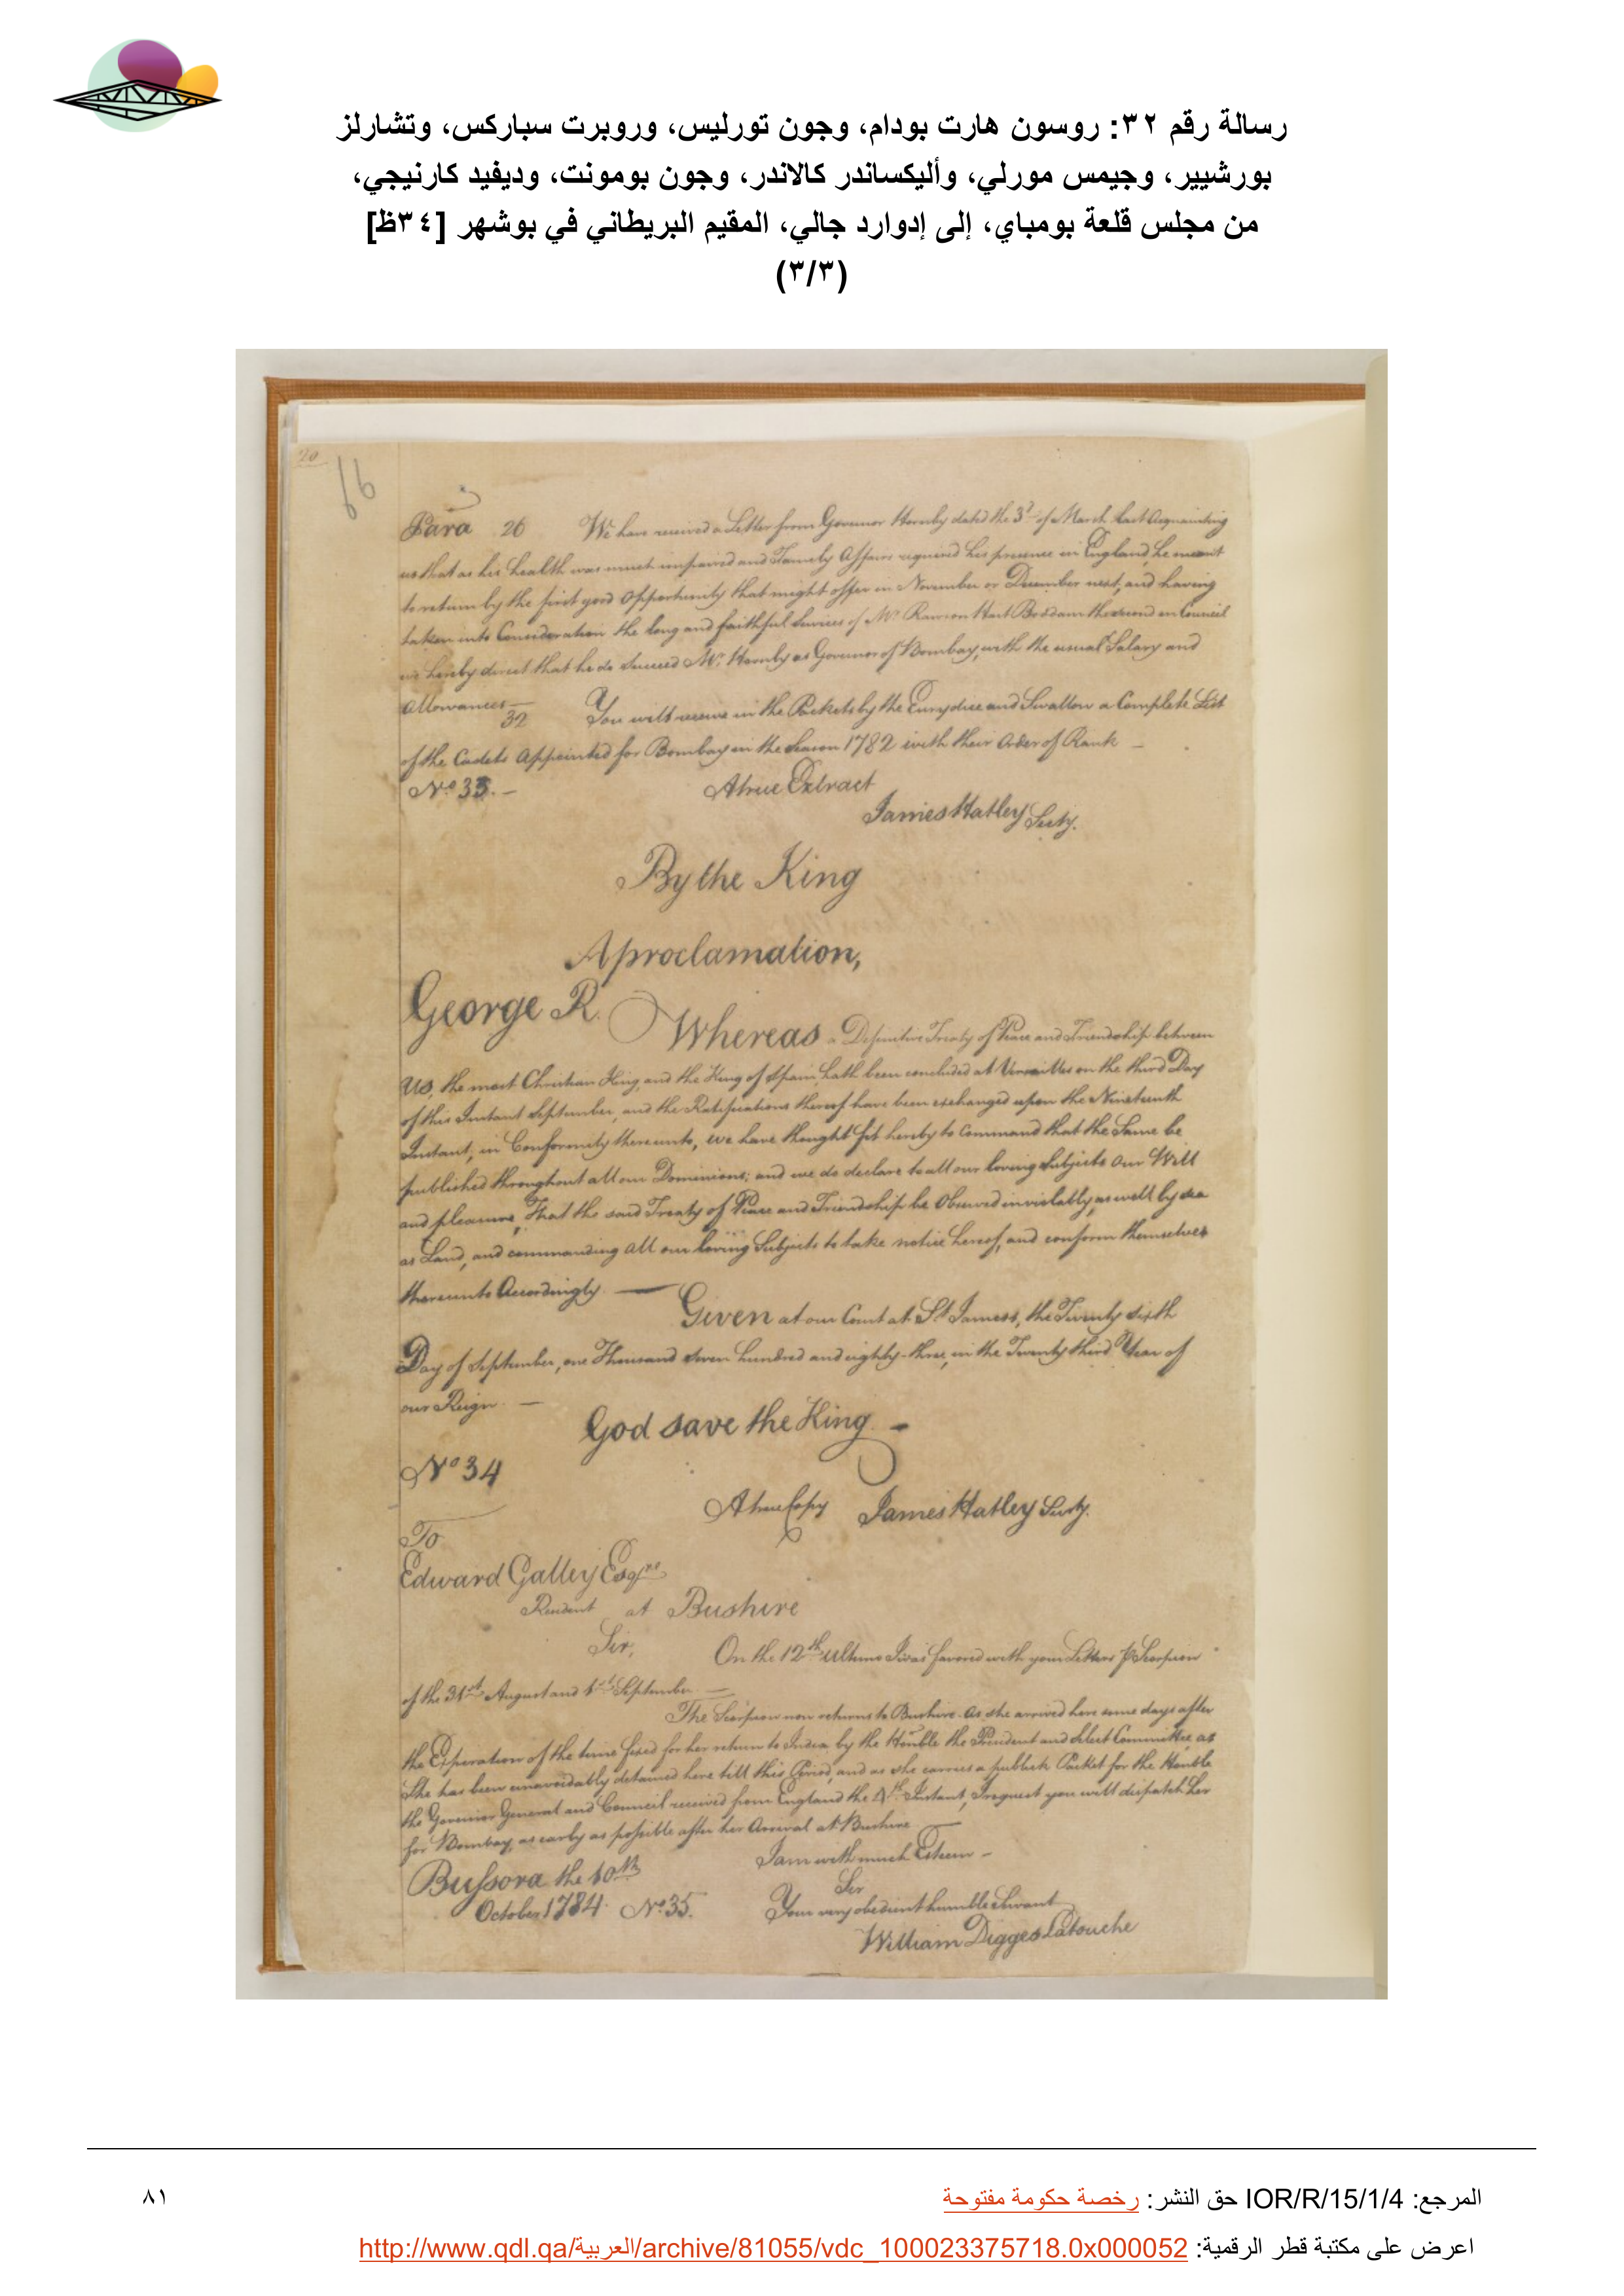 رسالة رقم ٣٢: روسون هارت بودام، وجون تورليس، وروبرت سباركس، وتشارلز
بورشيير، وجيمس مورلي، وأليكساندر كالاندر، وجون بومونت، وديفيد كارنيجي،
من مجلس قلعة بومباي، إلى إدوارد جالي، المقيم البريطاني في بوشهر [٣٤ظ]
(٣/٣)
20
66
Para 26 We have received a Letter from Governor Hornby dated the 3d of March last Acquainting
us that as his health was much impaired and Family Affairs required his presence in England, he meant
to return by the first good Opportunity that might offer in November or December next, and having
taken into Consideration the long and faithful Services of Mr. Rawson Hart Boddam the second in Council
we hereby direct that he do Succeed Mr. Hornby as Governor of Bombay, with the usual Salary and
Allowances —
32 You will receive in the Packets by the Eurydice and Swallow a Complete List
of the Cadets Appointed for Bombay in the Season 1782 with their Order of Rank —
No. 33. — A true Extract
James Hatley Secty.
By the King
A proclamation,
George R. Whereas a Definitive Treaty of Peace and Friendship between
Us, the most Christian King, and the King of Spain, hath been concluded at Versailles on the third Day
of this Instant September, and the Ratifications thereof have been exchanged upon the Nineteenth
Instant, in Conformity thereunto, we have thought fit hereby to Command that the Same be
published throughout all our Dominions; and we do declare to all our loving Subjects Our Will
and pleasure, That the said Treaty of Peace and Friendship be Observed inviolably, as well by sea
as Land, and commanding all our loving Subjects to take notice hereof, and conform themselves
thereunto Accordingly. — Given at our Court at St. James's, the Twenty sixth
Day of September, one Thousand seven hundred and eighty-three, in the Twenty third Year of
our Reign. —
God save the King —
No 34
A true Copy James Hatley Secty.
To
Edward Galley Esqre.
Resident at Bushire
Sir, On the 12th ultimo I was favored with your Letters P Scorpion
of the 31st August and 1st September —
The Scorpion now returns to Bushire. As she arrived here some days after
the Experation of the time fixed for her return to India by the Honble the President and Select Committee, as
She has been unavoidably detained here till this Period, and as she carries a publick Packet for the Honble
the Governor General and Council received from England the 4th Instant, I request you will dispatch her
for Bombay, as early as possible after her Arrival at Bushire —
I am with much Esteem —
Bussora the 10th Sir
October 1784. No. 35. Your very obedient humble Servant
William Digges Latouche
المرجع: IOR/R/15/1/4 حق النشر: رخصة حكومة مفتوحة
٨١
اعرض على مكتبة قطر الرقمية: http://www.qdl.qa/العربية/archive/81055/vdc_100023375718.0x000052